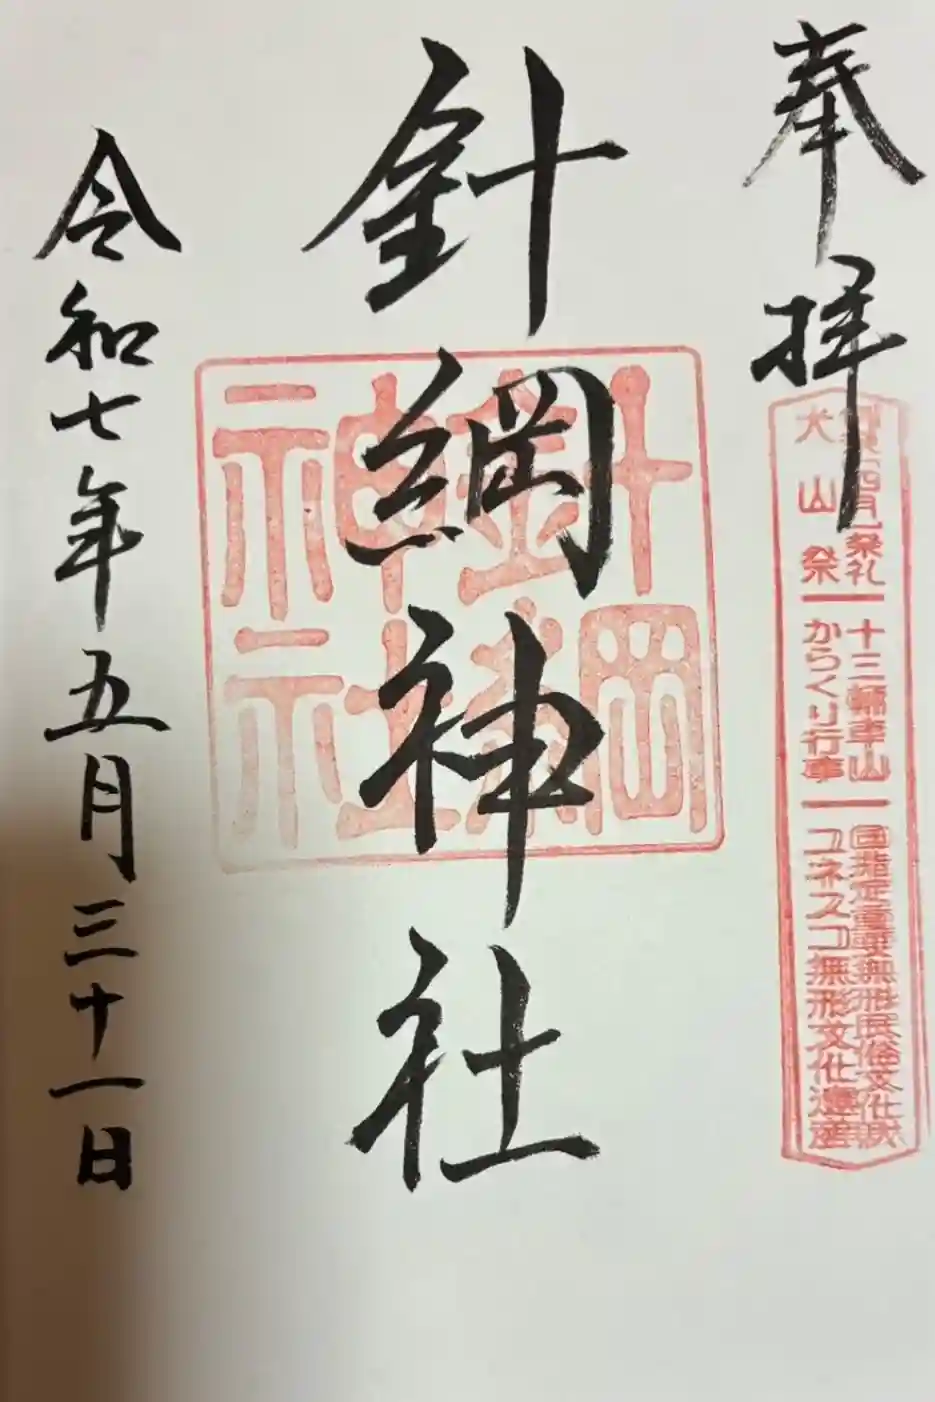 奉拝
祭礼 十三輛車山 国指定重要無形民俗文化財
犬山祭 からくり行事 ユネスコ無形文化遺産
針綱神社
針綱神社
令和七年五月三十一日